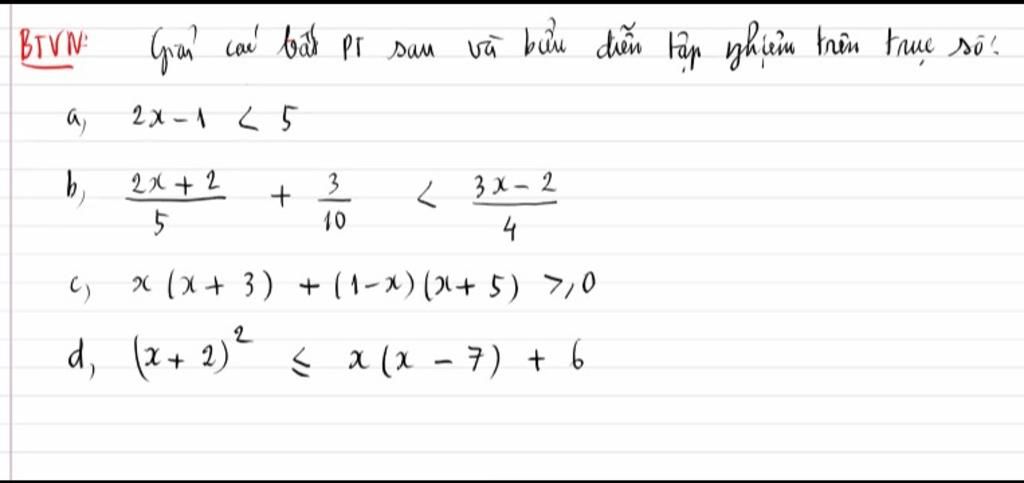 BTVN: Giải các bất PT sau và biểu diễn tập nghiệm trên trục số:
a, 2x - 1 < 5
b, \frac{2x + 2}{5} + \frac{3}{10} < \frac{3x - 2}{4}
c, x (x + 3) + (1 - x) (x + 5) ≥ 0
d, (x + 2)² ≤ x (x - 7) + 6